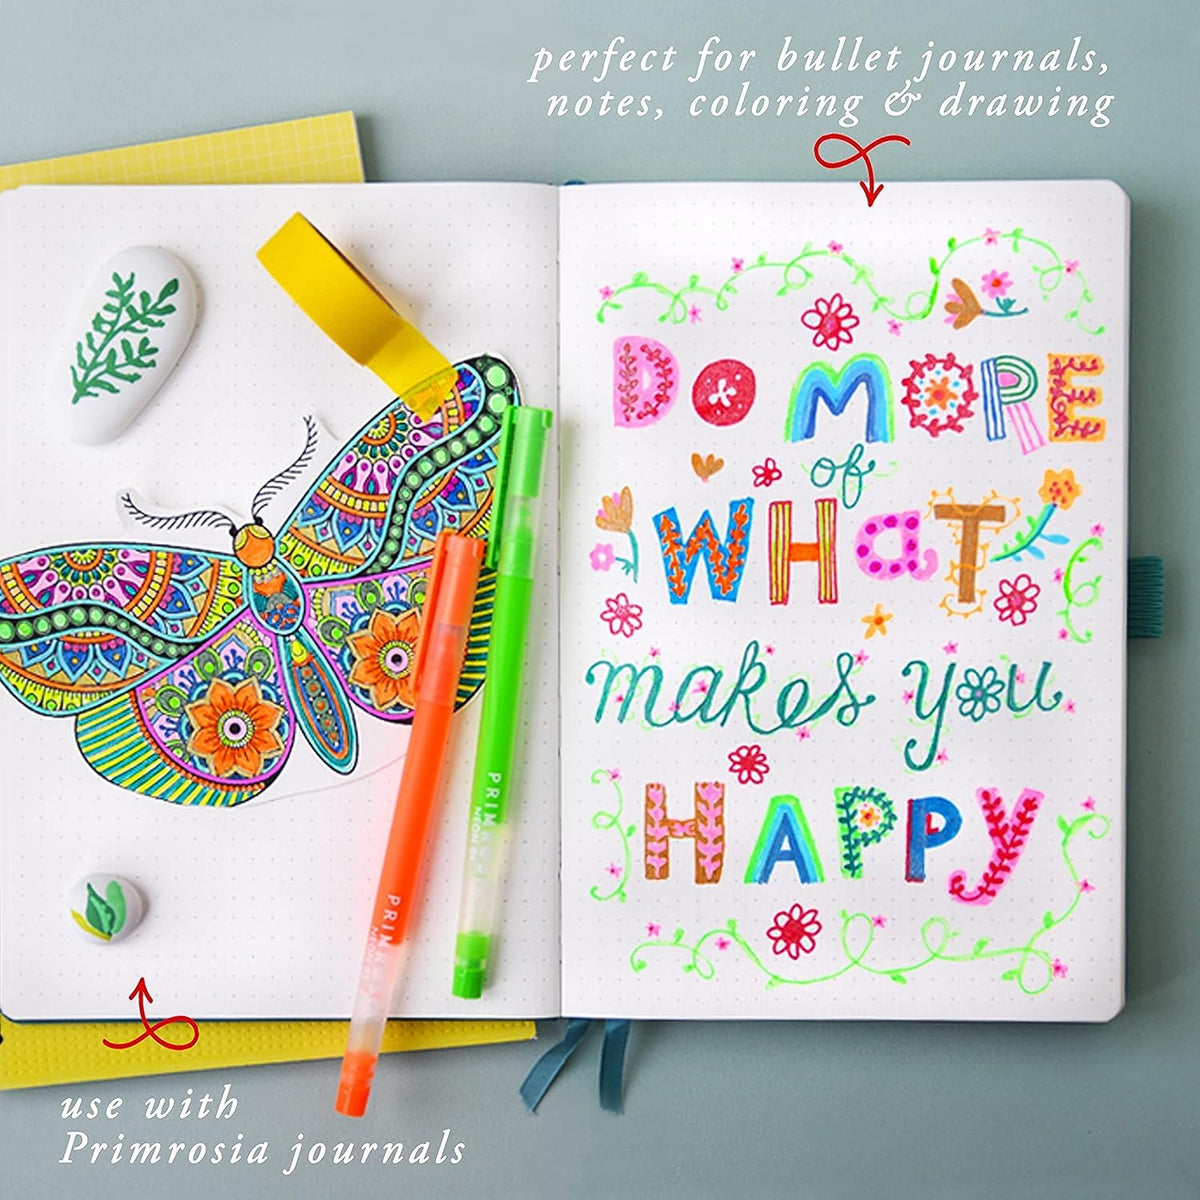 perfect for bullet journals,
notes, coloring & drawing
DO MORE
of
WHaT
makes you
HAPPy
NEON
use with
Primrosia journals